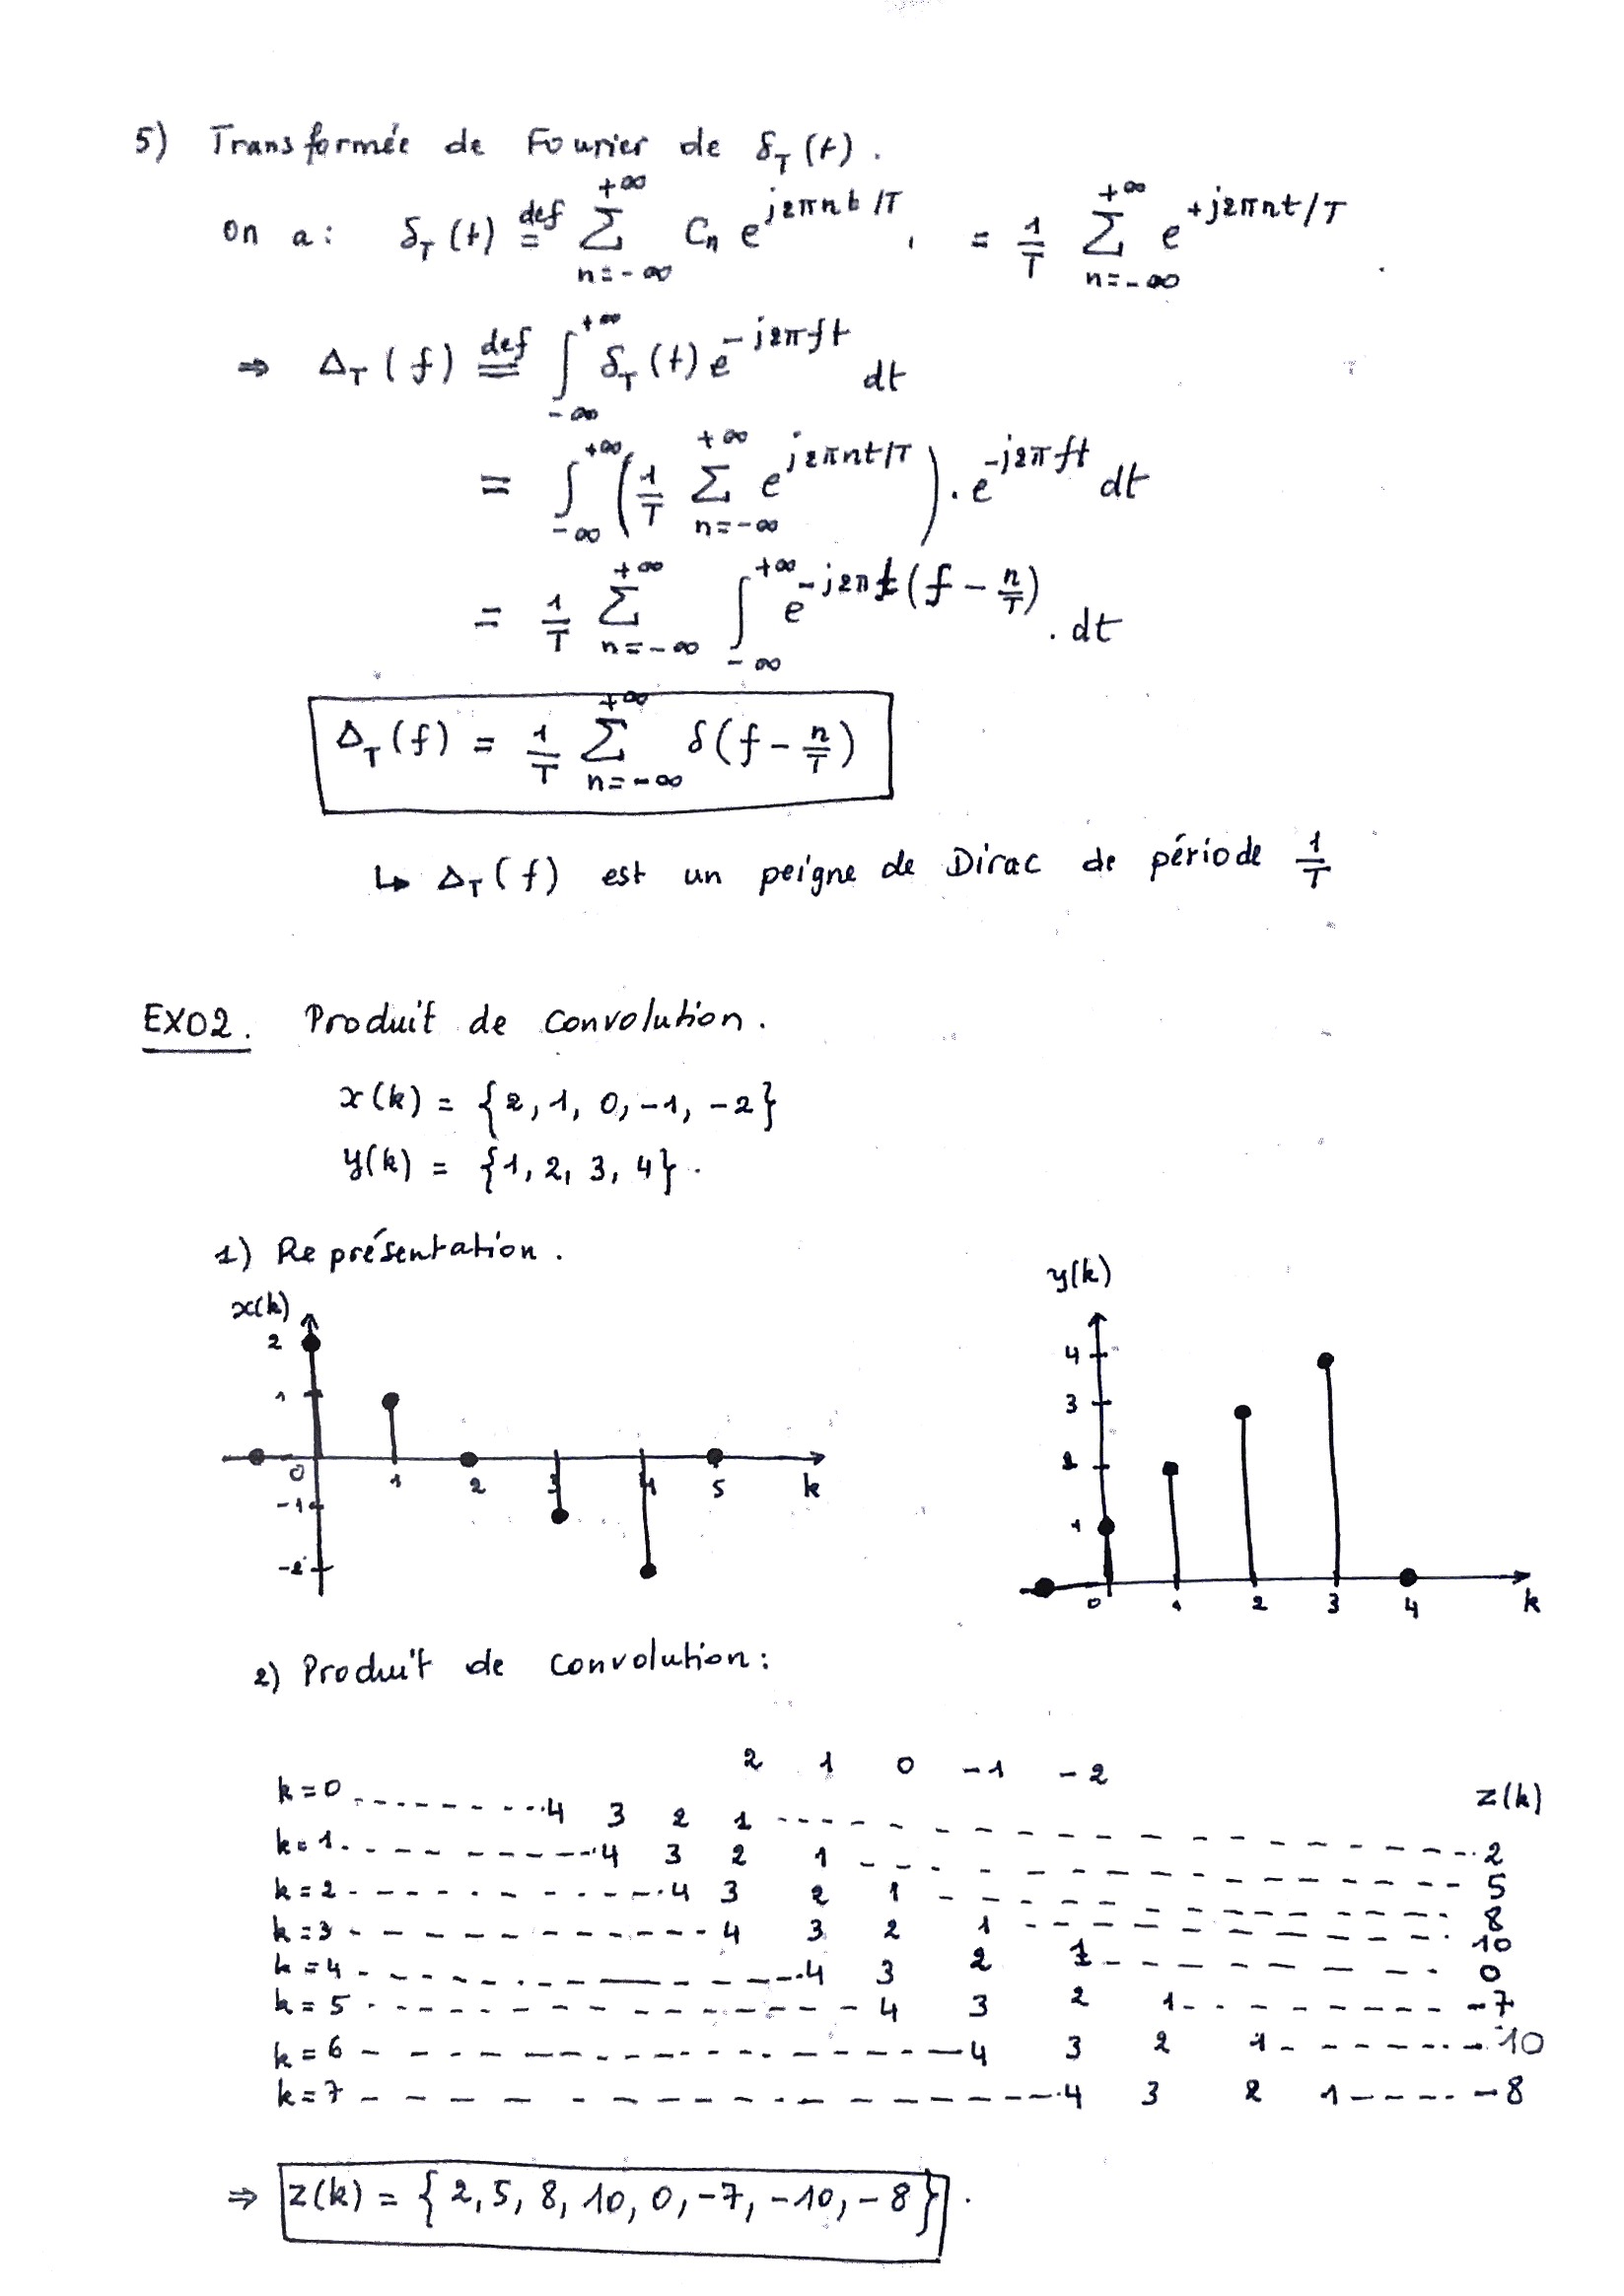 5) Transformée de Fourier de δ_T(t).
On a : δ_T(t) =^{def} Σ_{n=-∞}^{+∞} C_n e^{j2πnt/T}, = 1/T Σ_{n=-∞}^{+∞} e^{+j2πnt/T}.
⇒ Δ_T(f) =^{def} ∫_{-∞}^{+∞} δ_T(t) e^{-j2πft} dt
= ∫_{-∞}^{+∞} (1/T Σ_{n=-∞}^{+∞} e^{j2πnt/T}) . e^{-j2πft} dt
= 1/T Σ_{n=-∞}^{+∞} ∫_{-∞}^{+∞} e^{-j2πt(f - n/T)} . dt
Δ_T(f) = 1/T Σ_{n=-∞}^{+∞} δ(f - n/T)
↳ Δ_T(f) est un peigne de Dirac de période 1/T
EXO2. Produit de convolution.
x(k) = {2, 1, 0, -1, -2}
y(k) = {1, 2, 3, 4}.
1) Représentation.
x(k)
2
1
0 1 2 3 4 5 k
-1
-2
y(k)
4
3
2
1
0 1 2 3 4 k
2) Produit de convolution :
2 1 0 -1 -2
z(k)
k=0 4 3 2 1 2
k=1 4 3 2 1 5
k=2 4 3 2 1 8
k=3 4 3 2 1 10
k=4 4 3 2 1 0
k=5 4 3 2 1 -7
k=6 4 3 2 1 -10
k=7 4 3 2 1 -8
⇒ z(k) = {2, 5, 8, 10, 0, -7, -10, -8}.